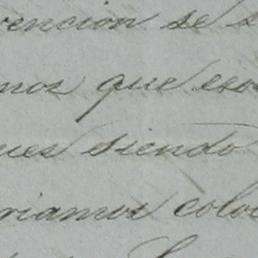 vencion se s
mos que eso
ues siendo
riamos colo